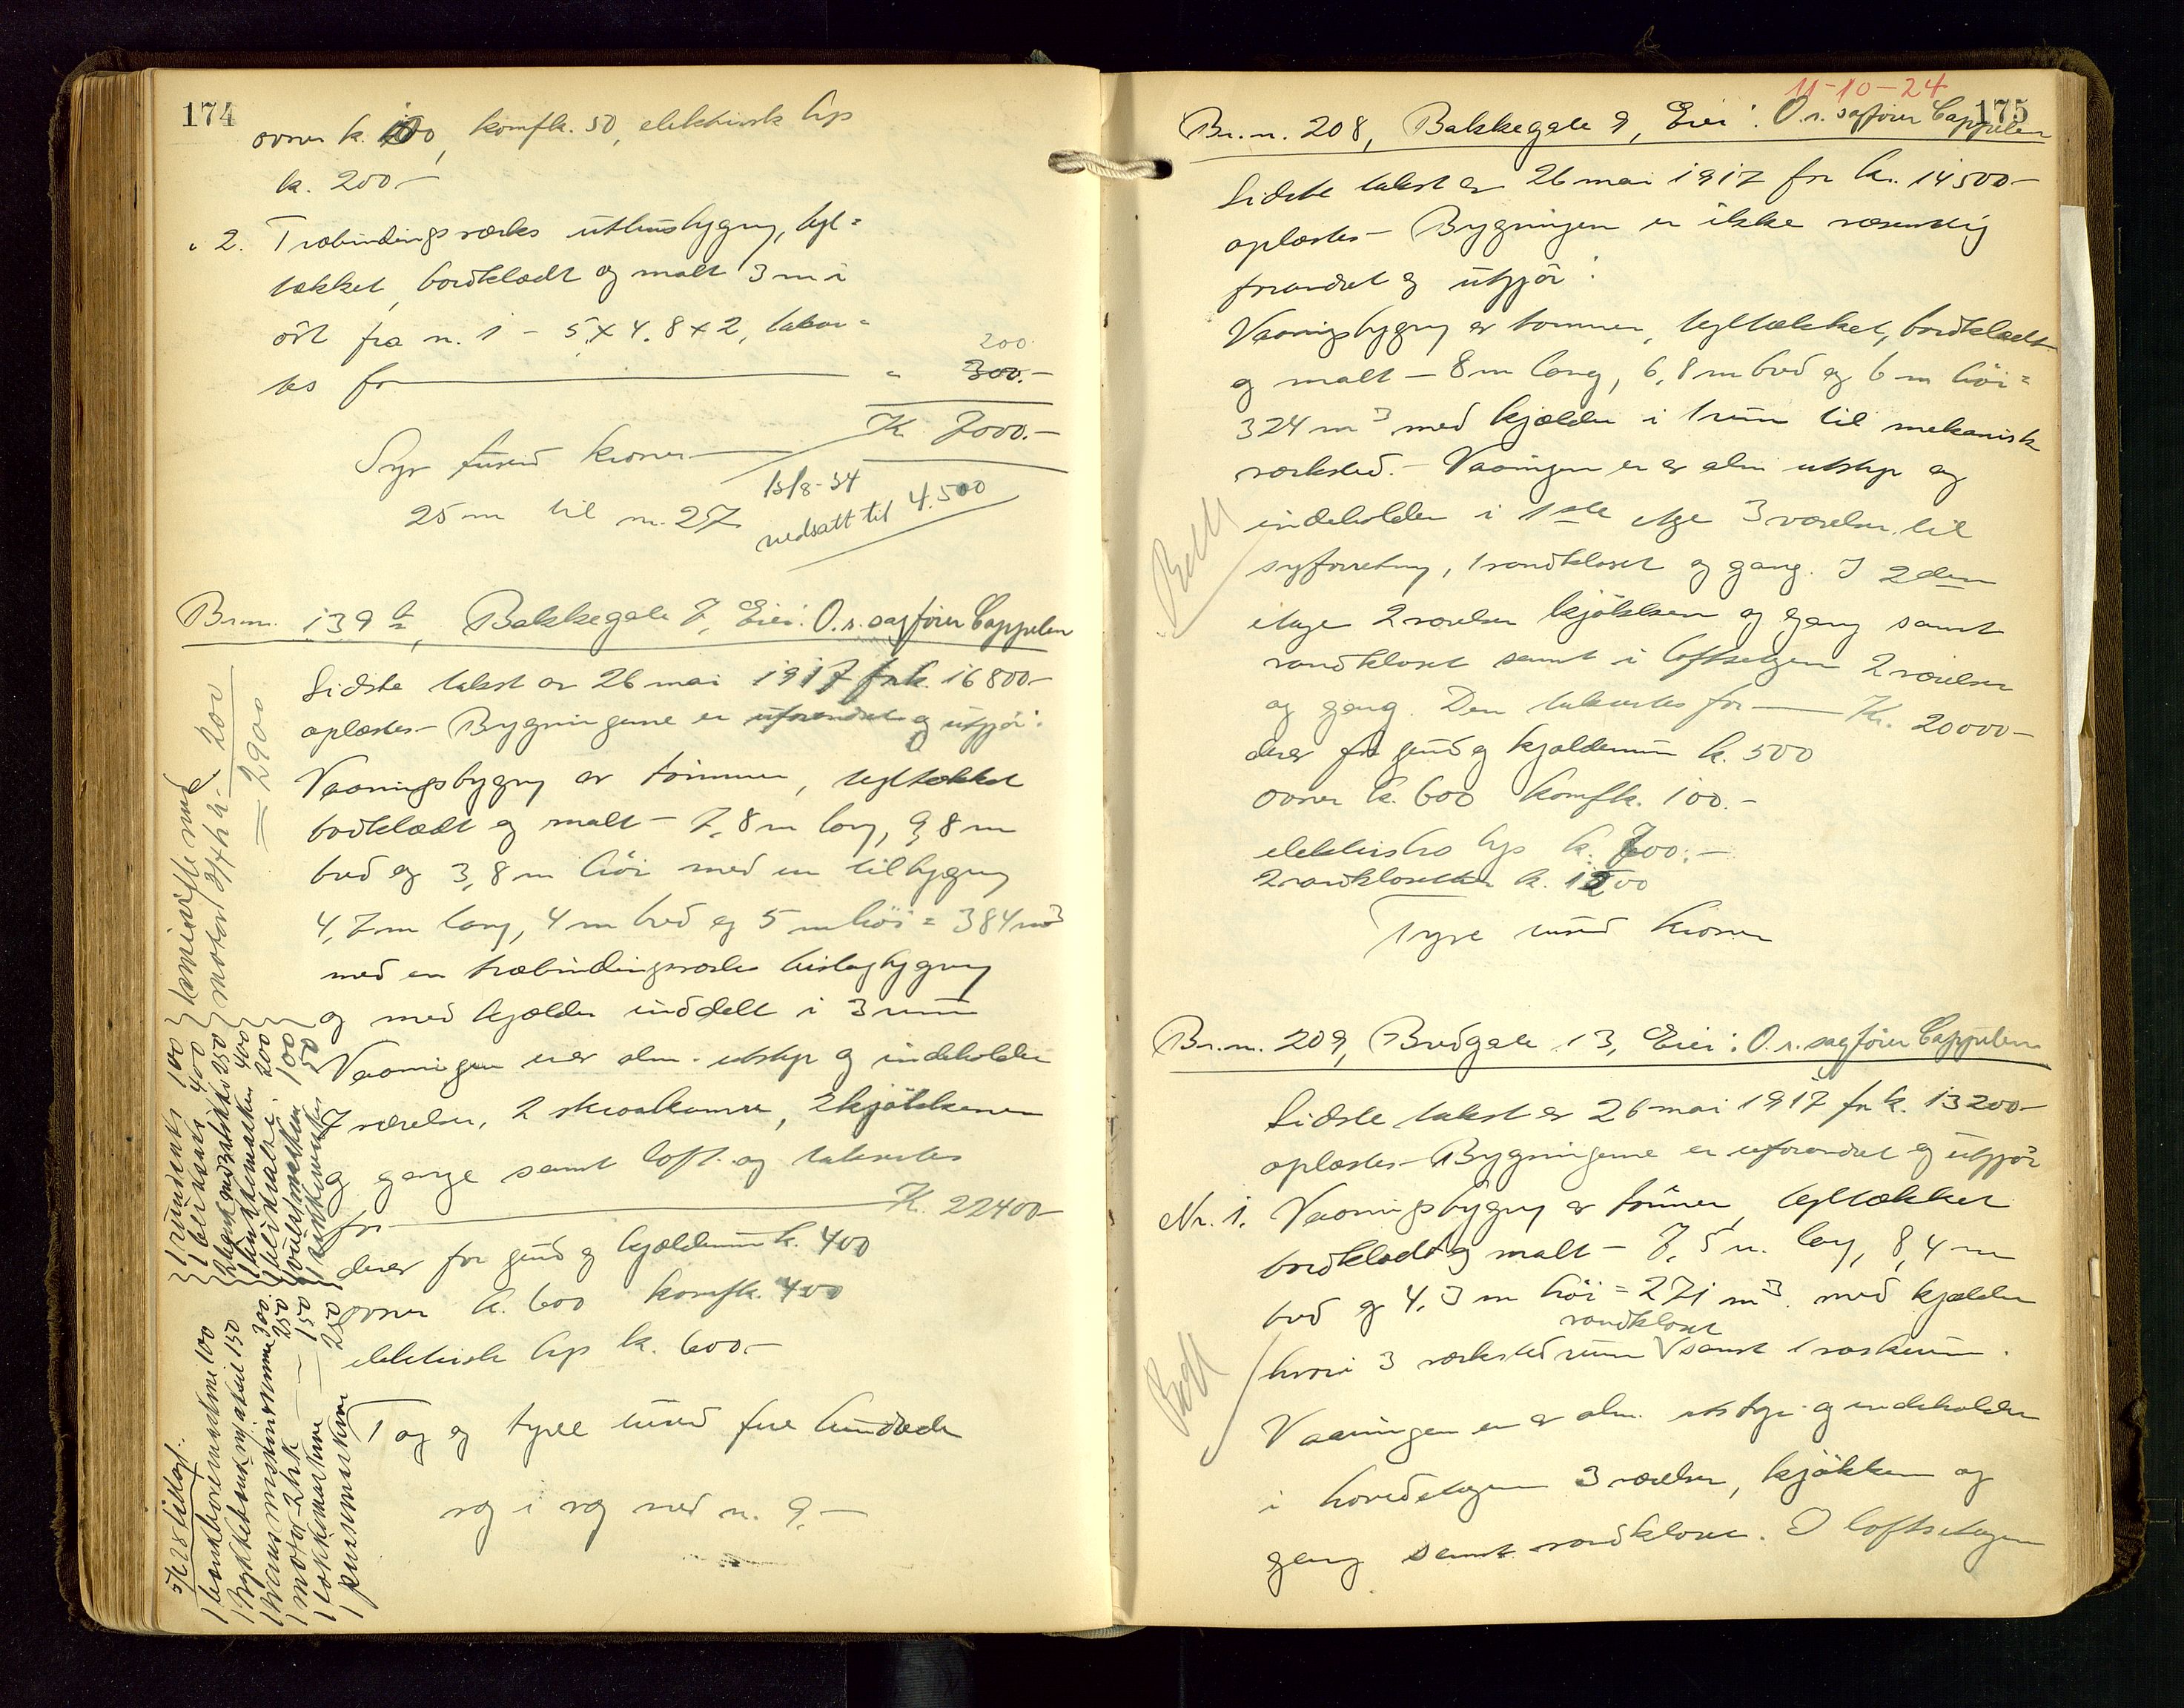 174
ovner k. 100, komfk. 50, elektrisk lys
k. 200 –
" 2. Træbindingsværks uthusbygng, tegl=
tækket, bordklædt og malt 3 m i
öst fra nr. 1 – 5 x 4.8 x 2, takser=
tes for " 200.
300. –
K. 7000. –
Syv tusend kroner
25 m til nr. 27
13/8-34
nedsatt til 4.500
Br.nr. 139 a, Bakkegate 7, Eier: O.r. sagförer Cappelen
Sidste takst av 26 mai 1917 for k. 16800 –
oplæstes – Bygningerne er uforandret og utgjör:
Vaaningsbygng av tömmer, tegltækket
bordklædt og malt – 7,8 m lang, 9,8 m
bred og 3,8 m höi med en tilbygng
4,7 m lang, 4 m bred og 5 m höi = 384 m3
med en træbindingsværks bislagbygng
og med kjælder inddelt i 3 rum
Vaaningen er av alm. utstyr og indeholder
7 værelser, 2 skraalkamre, 2 kjökkener
og gange samt loft. og takseres
for K. 22400 –
derav for grund og kjælderrum k. 400
ovner k. 600 komfk. 400
elektrisk lys k. 600 –
To og tyve tusend fire hundrede
væg i væg med nr. 9. –
5/6 25 tillagt.
1 haandboremaskine 100
1 motor – 2 hk – 150
250
1 rundsaks 100
400
2 250
400
200
100
50
1 knivsliffe med
motor 3/4 hk – 200
= 2900
11-10-24
175
Br.nr. 208, Bakkegate 9, Eier: O.r. sagförer Cappelen
Sidste takst av 26 mai 1917 for k. 14500 –
oplæstes – Bygningen er ikke væsentlig
forandret og utgjör:
Vaaningsbygng av tömmer, tegltækket, bordklædt
og malt – 8 m lang, 6,8 m bred og 6 m höi =
324 m3 med kjælder i 1 rum til mekanisk
verksted. – Vaaningen er av alm utstyr og
indeholder i 1ste etage 3 værelser til
syforretng, 1 vandkloset og gang. I 2den
etage 2 værelser kjökken og gang samt
vandkloset samt i loftsetagen 2 værelser
og gang. Den takseres for Kr. 20000 –
derav for grund og kjælderrum k. 500
ovner k. 600 komfk. 100. –
elektrisk lys k. 700. –
2 vandklosetter k. 1200
Tyve tusend kroner
Br.nr. 209, Bredgate 13, Eier: O.r. sagförer Cappelen
Sidste takst av 26 mai 1917 for k. 13200 –
oplæstes – Bygningerne er uforandret og utgjör
Nr. 1. Vaaningsbygng av tömmer, tegltækket
bordklædt og malt – 7,5 m. lang, 8,4 m
bred og 4,3 m höi = 271 m3. med kjælder
vandkloset
hvori 3 verkstedrum V samt 1 vaskerum.
Vaaningen er av alm. utstyr og indeholder
i hovedetagen 3 værelser, kjökken og
gang samt vandkloset. I loftsetagen